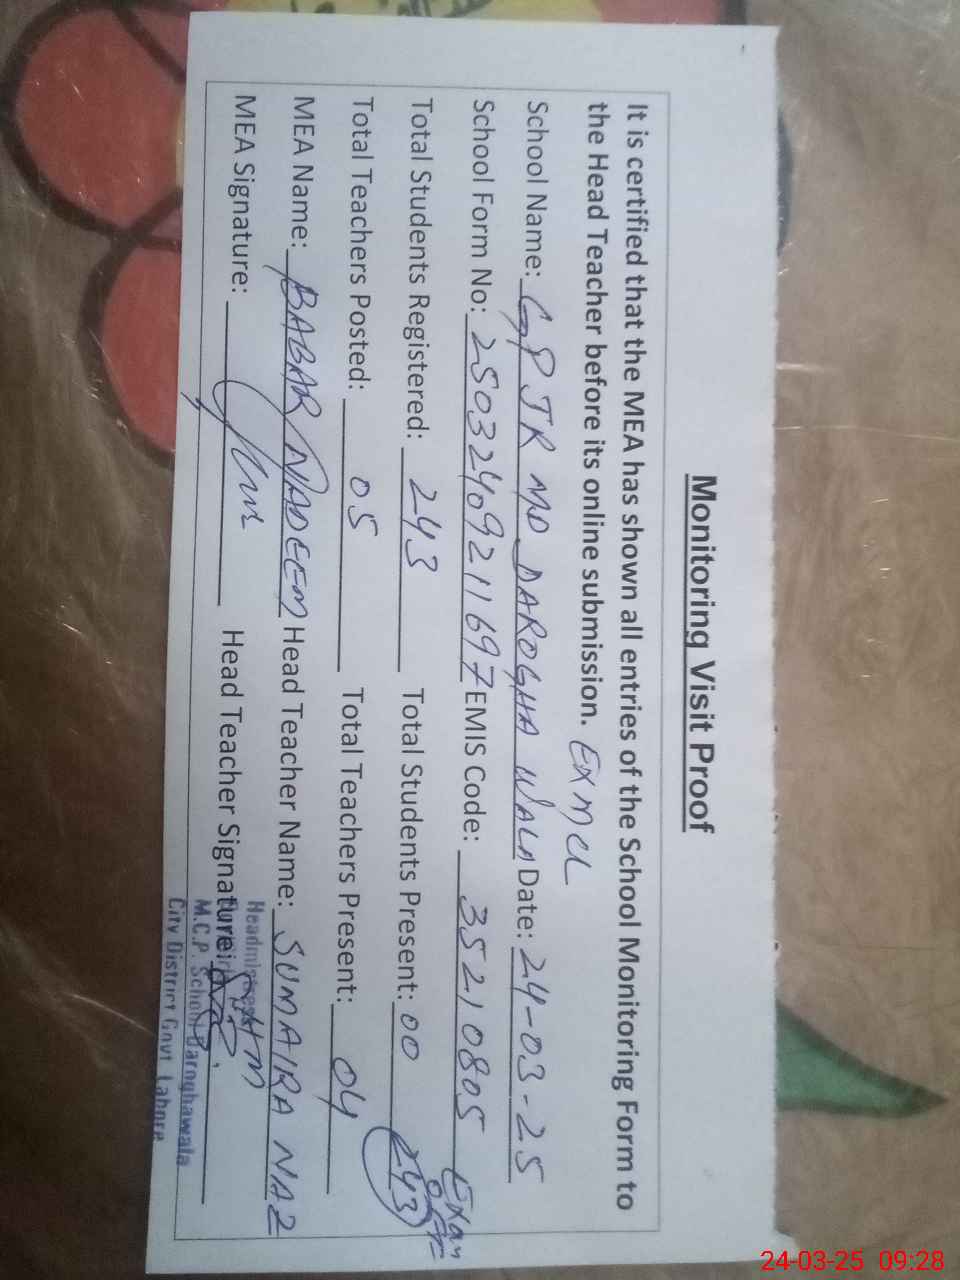 Monitoring Visit Proof
It is certified that the MEA has shown all entries of the School Monitoring Form to
the Head Teacher before its online submission.
School Name: GP JR MD DAROGHA WALA Date: 24-03-25
School Form No: 25032409211697 EMIS Code: 35210805
Total Students Registered: 243 Total Students Present: 00 243 Exam
Total Teachers Posted: 05 Total Teachers Present: 04
MEA Name: BABAR NADEEM Head Teacher Name: SUMAIRA NAZ
MEA Signature: Head Teacher Signature:
Headmistress
M.C.P. School Daroghawala
City District Govt Lahore
24-03-25 09:28